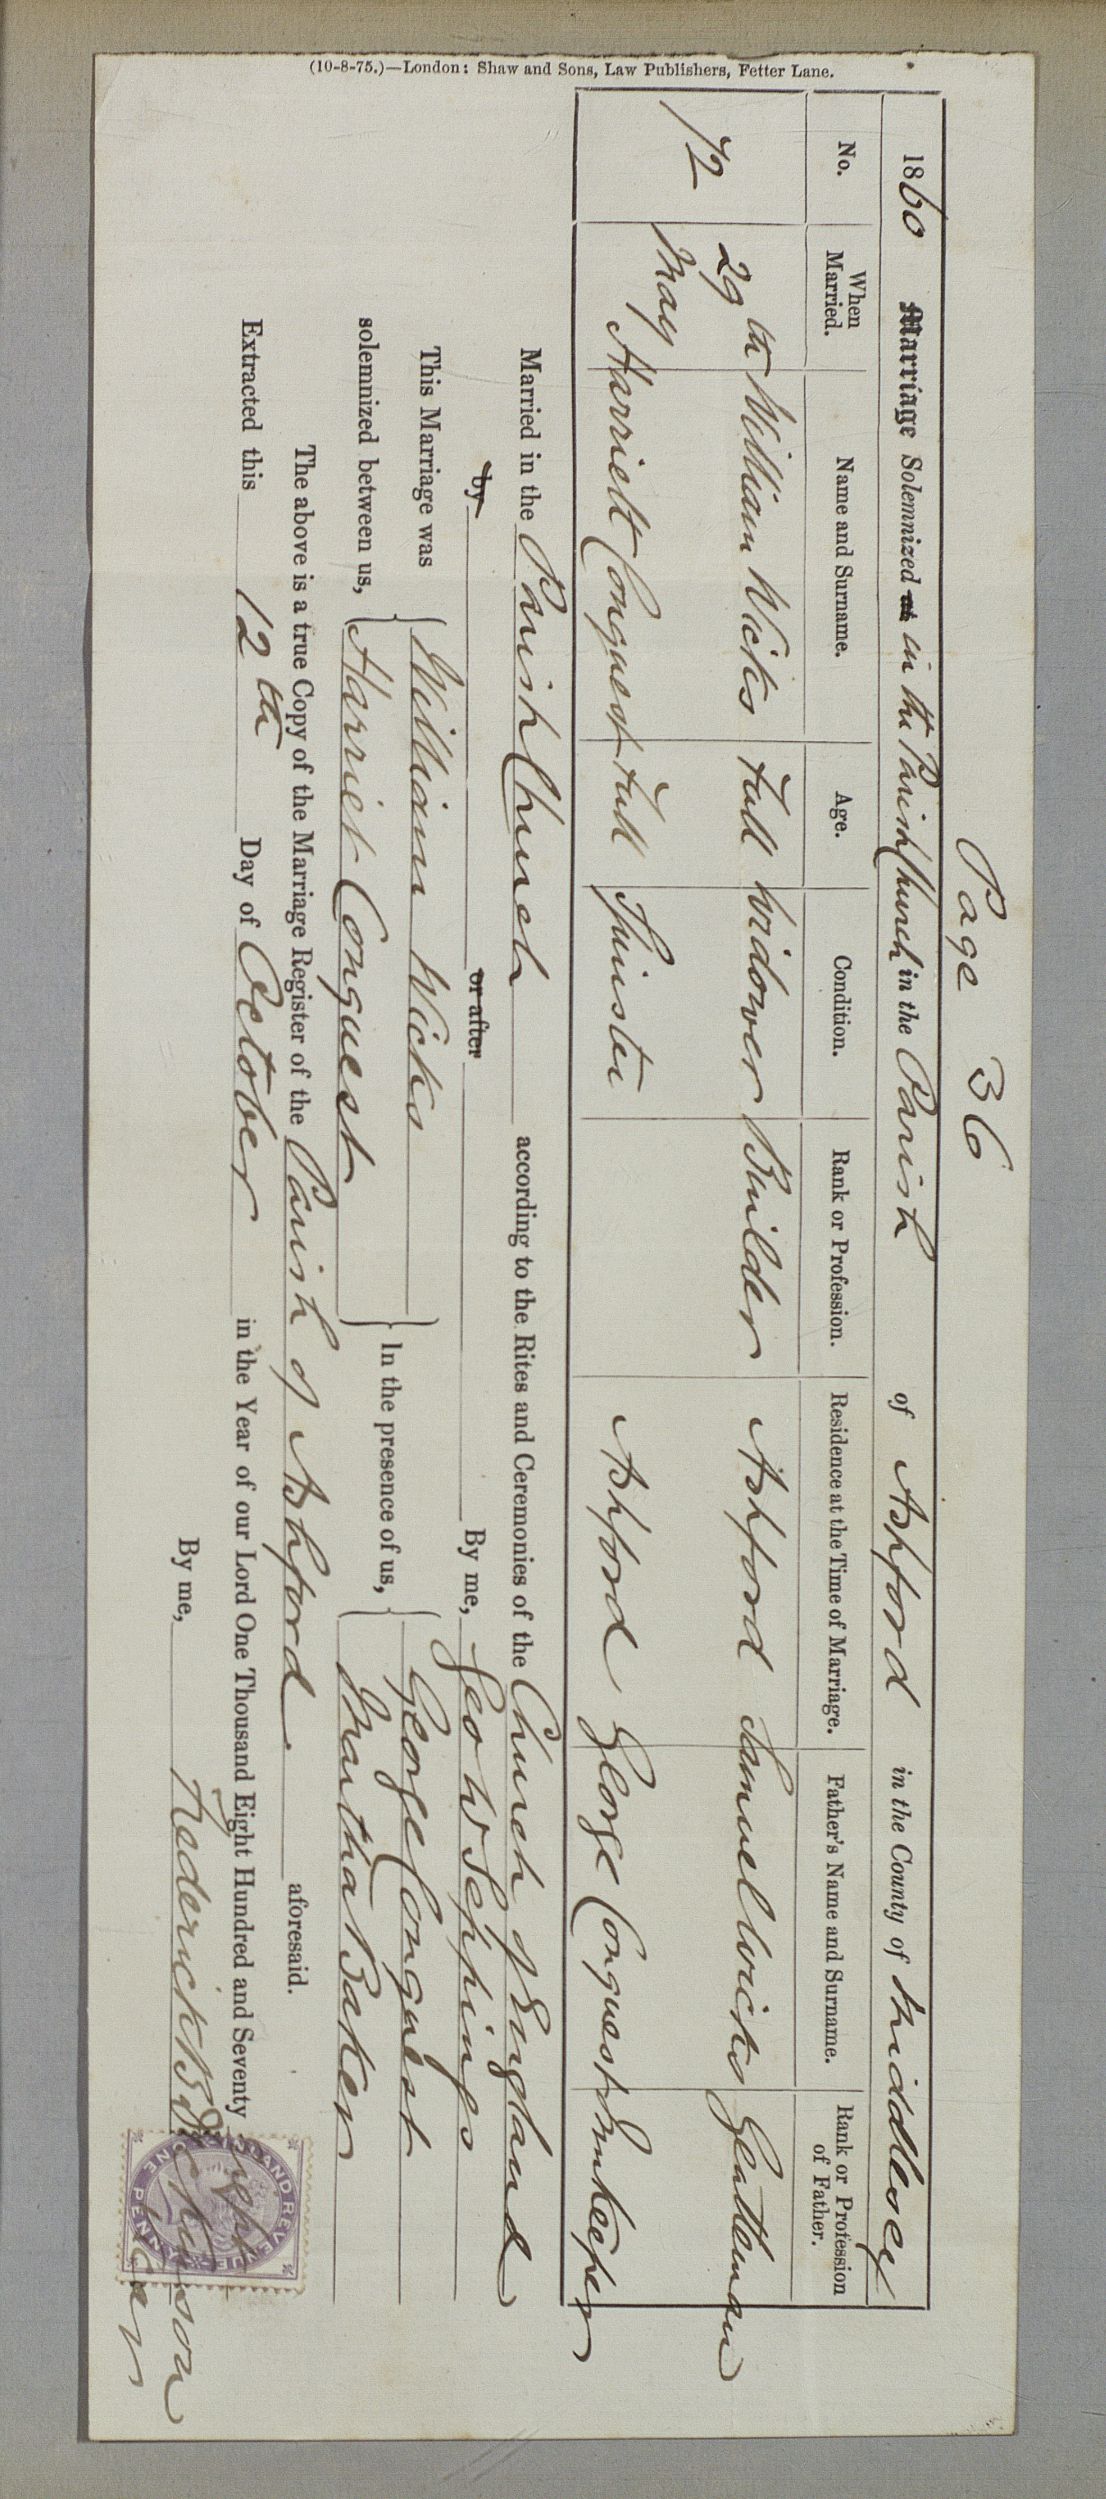 Page 36
1860 Marriage Solemnized at in the Parish Church in the Parish of Ashford in the County of Middlesex
No. When Married. Name and Surname. Age. Condition. Rank or Profession. Residence at the Time of Marriage. Father's Name and Surname. Rank or Profession of Father.
72 29th May William Wicks Full Widower Builder Ashford Samuel Wicks Gentleman
Harriett Conquest Full Spinster Ashford George Conquest Innkeeper
Married in the Parish Church according to the Rites and Ceremonies of the Church of England
by or after By me, Geo W Sephings
This Marriage was solemnized between us, William Wicks In the presence of us, George Conquest
Harriet Conquest Martha Baker
The above is a true Copy of the Marriage Register of the Parish of Ashford. aforesaid.
Extracted this 12th Day of October in the Year of our Lord One Thousand Eight Hundred and Seventy Eight
By me, Frederick B
INLAND REVENUE ONE PENNY
(10-8-75.)—London: Shaw and Sons, Law Publishers, Fetter Lane.